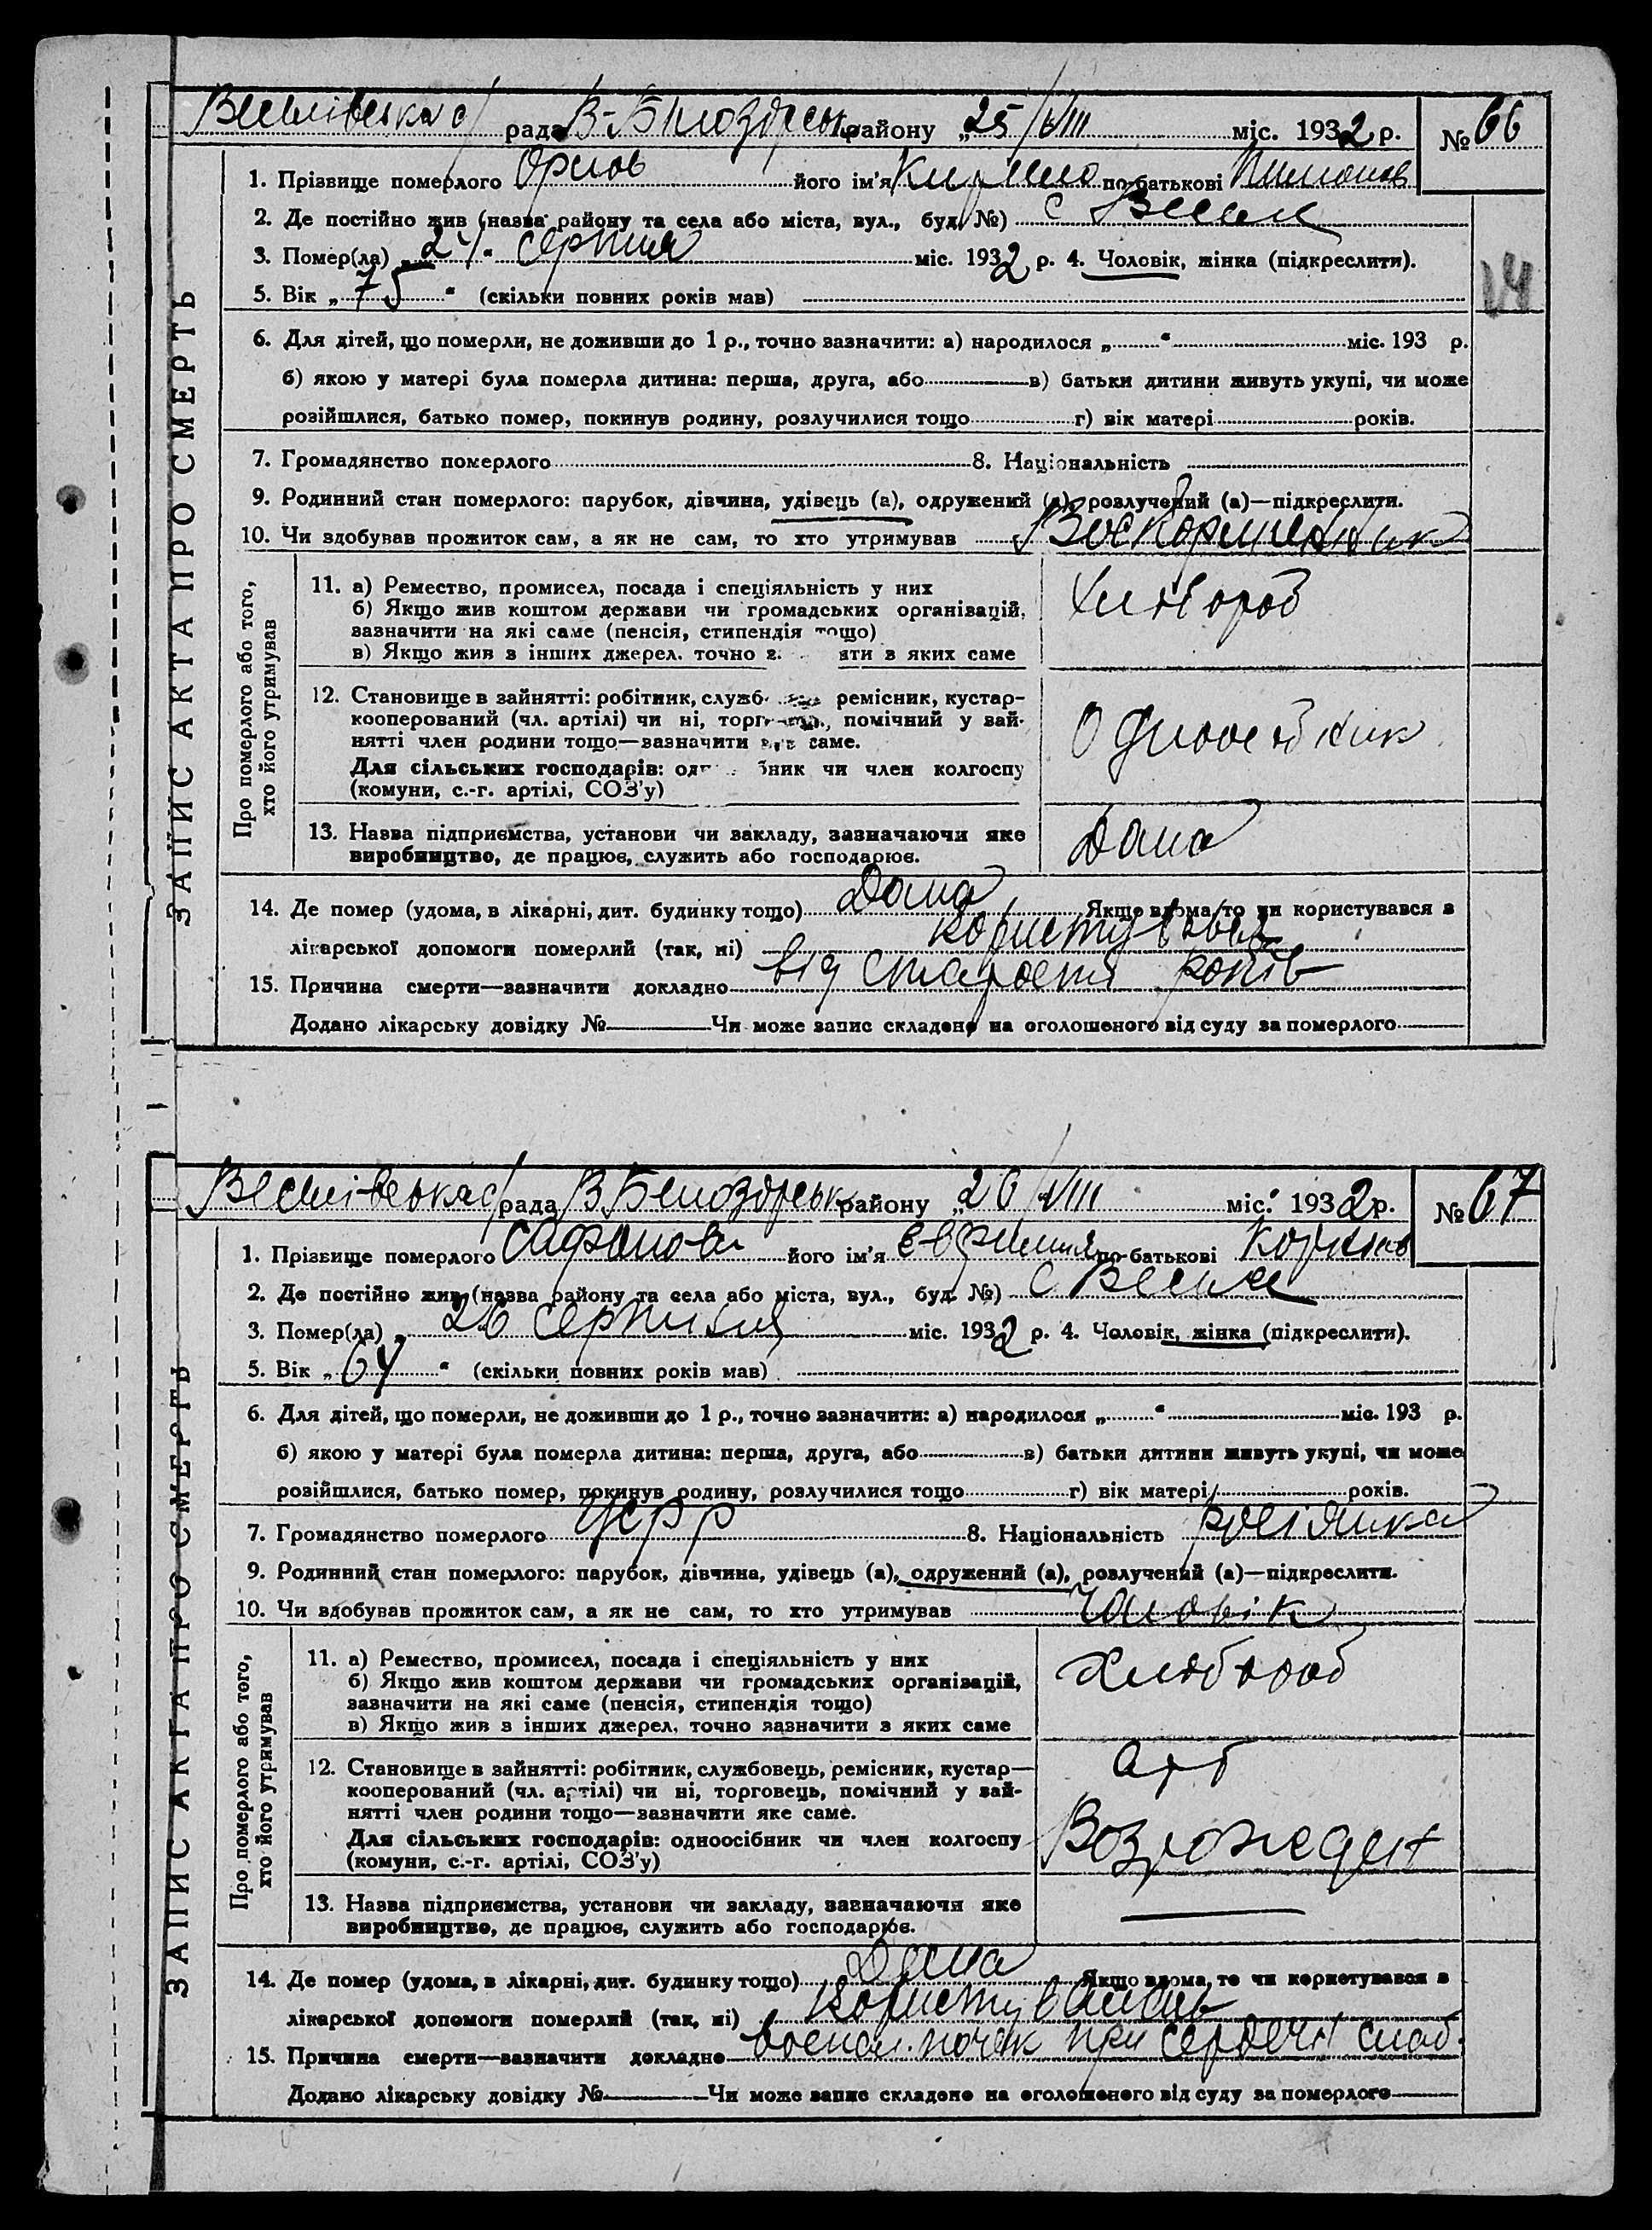 Веселівська с/рада В-Білозірськ району „25/VIII міс. 1932 р. № 66
1. Прізвище померлого Орлов його ім'я Кирило по-батькові
2. Де постійно жив (назва району та села або міста, вул., буд. №) с
3. Помер(ла) „24“ серпня міс. 1932 р. 4. Чоловік, жінка (підкреслити).
5. Вік „75“ (скільки повних років мав)
6. Для дітей, що померли, не доживши до 1 р., точно зазначити: а) народилося „ “ міс. 193 р.
б) якою у матері була померла дитина: перша, друга, або в) батьки дитини живуть укупі, чи може
розійшлися, батько помер, покинув родину, розлучилися тощо г) вік матері років.
7. Громадянство померлого 8. Національність
9. Родинний стан померлого: парубок, дівчина, удівець (а), одружений (а), розлучений (а)—підкреслити.
10. Чи здобував прожиток сам, а як не сам, то хто утримував
ЗАПИС АКТА ПРО СМЕРТЬ
Про померлого або того,
хто його утримував
11. а) Ремество, промисел, посада і спеціяльність у них
б) Якщо жив коштом держави чи громадських організацій,
зазначити на які саме (пенсія, стипендія тощо)
в) Якщо жив з інших джерел. точно з яти з яких саме
Хлібороб
12. Становище в зайнятті: робітник, служб ремісник, кустар-
кооперований (чл. артілі) чи ні, торг помічний у зай-
нятті член родини тощо—зазначити яке саме.
Для сільських господарів: од бник чи член колгоспу
(комуни, с.-г. артілі, СОЗ'у)
Одноосібник
13. Назва підприємства, установи чи закладу, зазначаючи яке
виробництво, де працює, служить або господарює.
Дома
14. Де помер (удома, в лікарні, дит. будинку тощо) Дома Якщо вдома, то чи користувався з
лікарської допомоги померлий (так, ні) користувався
15. Причина смерти—зазначити докладно від старости років
Додано лікарську довідку № Чи може запис складено на оголошеного від суду за померлого
14
Веселівська с/рада В Білозірськ району „26/VIII міс. 1932 р. № 67
1. Прізвище померлого Сафонова його ім'я Євфимия по-батькові
2. Де постійно жив (назва району та села або міста, вул., буд. №) с
3. Помер(ла) „26 серпня міс. 1932 р. 4. Чоловік, жінка (підкреслити).
5. Вік „64“ (скільки повних років мав)
6. Для дітей, що померли, не доживши до 1 р., точно зазначити: а) народилося „ “ міс. 193 р.
б) якою у матері була померла дитина: перша, друга, або в) батьки дитини живуть укупі, чи може
розійшлися, батько помер, покинув родину, розлучилися тощо г) вік матері років.
7. Громадянство померлого УСРР 8. Національність росіянка
9. Родинний стан померлого: парубок, дівчина, удівець (а), одружений (а), розлучений (а)—підкреслити.
10. Чи здобував прожиток сам, а як не сам, то хто утримував Чоловік
ЗАПИС АКТА ПРО СМЕРТЬ
Про померлого або того,
хто його утримував
11. а) Ремество, промисел, посада і спеціяльність у них
б) Якщо жив коштом держави чи громадських організацій,
зазначити на які саме (пенсія, стипендія тощо)
в) Якщо жив з інших джерел, точно зазначити з яких саме
Хлібороб
12. Становище в зайнятті: робітник, службовець, ремісник, кустар—
кооперований (чл. артілі) чи ні, торговець, помічний у зай-
нятті член родини тощо—зазначити яке саме.
Для сільських господарів: одноосібник чи член колгоспу
(комуни, с.-г. артілі, СОЗ'у)
Арт
13. Назва підприємства, установи чи закладу, зазначаючи яке
виробництво, де працює, служить або господарює.
14. Де помер (удома, в лікарні, дит. будинку тощо) Дома Якщо вдома, то чи користувався з
лікарської допомоги померлий (так, ні) користувалась
15. Причина смерти—зазначити докладно воспал. почек при сердечн слаб.
Додано лікарську довідку № Чи може запис складено на оголошеного від суду за померлого